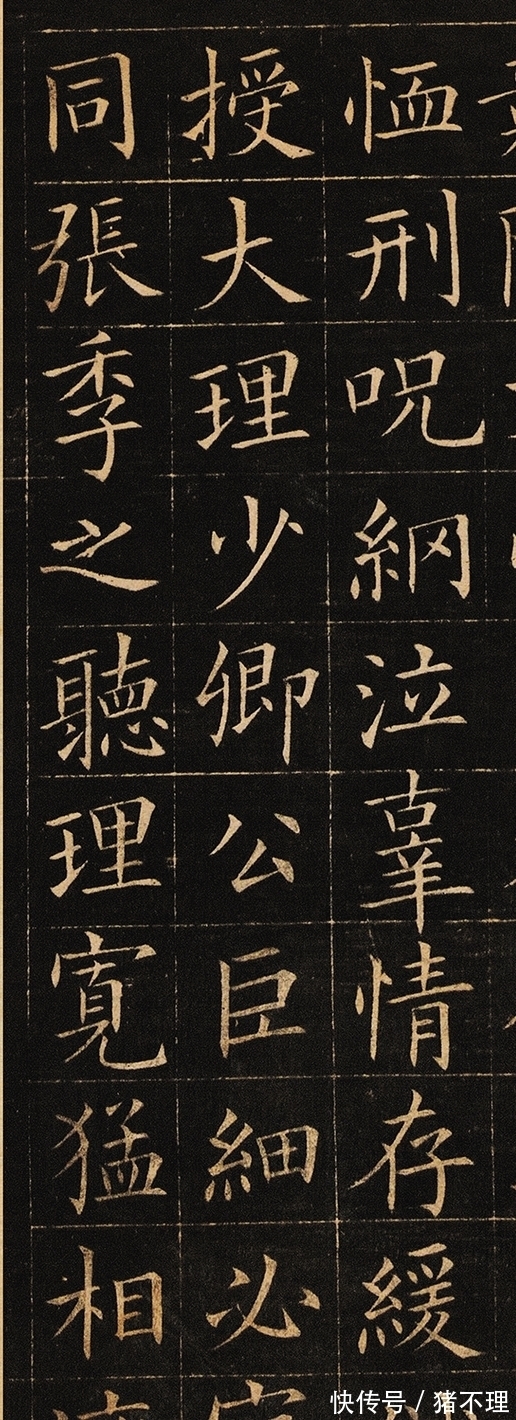 恤刑呪網泣辜情存緩
授大理少卿公巨細必
同張季之聽理寬猛相
快传号 / 猪不理